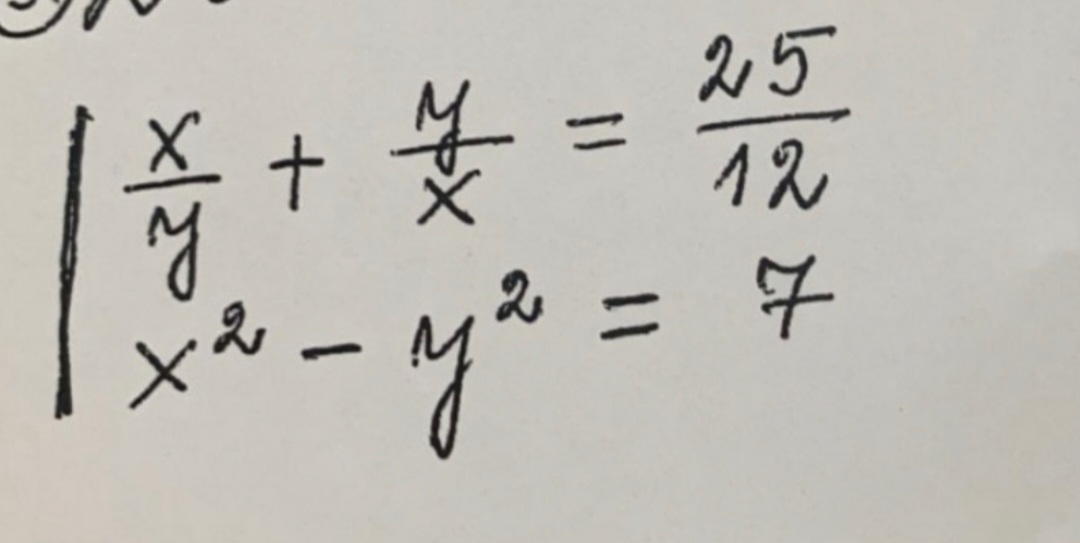 x/y + y/x = 25/12
x² - y² = 7